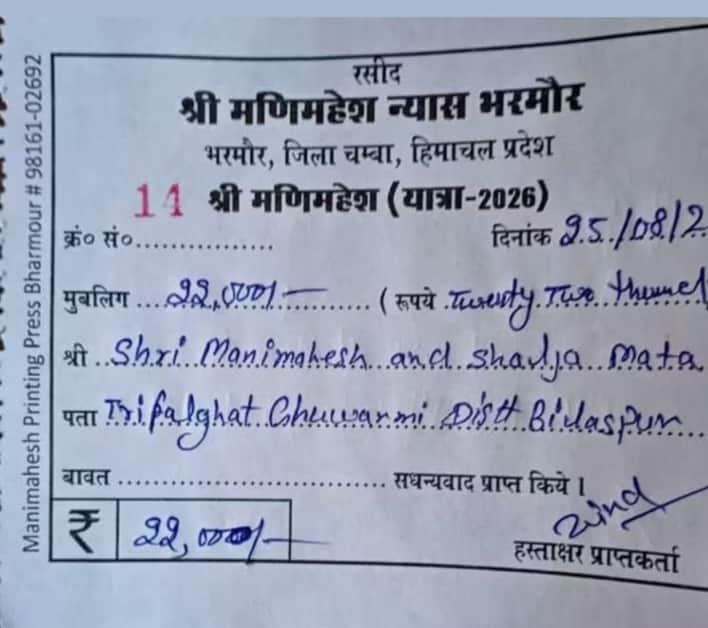 रसीद
श्री मणिमहेश न्यास भरमौर
भरमौर, जिला चम्बा, हिमाचल प्रदेश
11 श्री मणिमहेश (यात्रा-2026)
क्रं० सं०................ दिनांक 25/08/2
मुबलिग ...22,000/-............ (रूपये Twenty Two
श्री ..Shri Manimahesh and Mata
पता Distt Bilaspur
बावत ................................ सधन्यवाद प्राप्त किये ।
₹ 22,000/-
हस्ताक्षर प्राप्तकर्ता
Manimahesh Printing Press Bharmour # 98161-02692